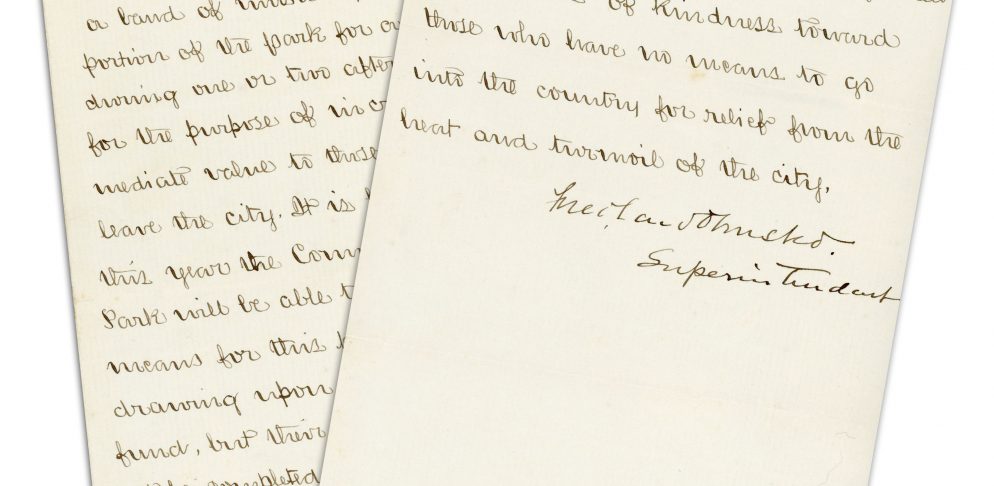 a band of
portion of the park for
during one or two after
for the purpose of
mediate value to those
leave the city. It is
this year the Com
Park will be able t
means for this
drawing upon
fund, but their
completed
of kindness toward
those who have no means to go
into the country for relief from the
heat and turmoil of the city.
Fred. Law Olmsted.
Superintendent